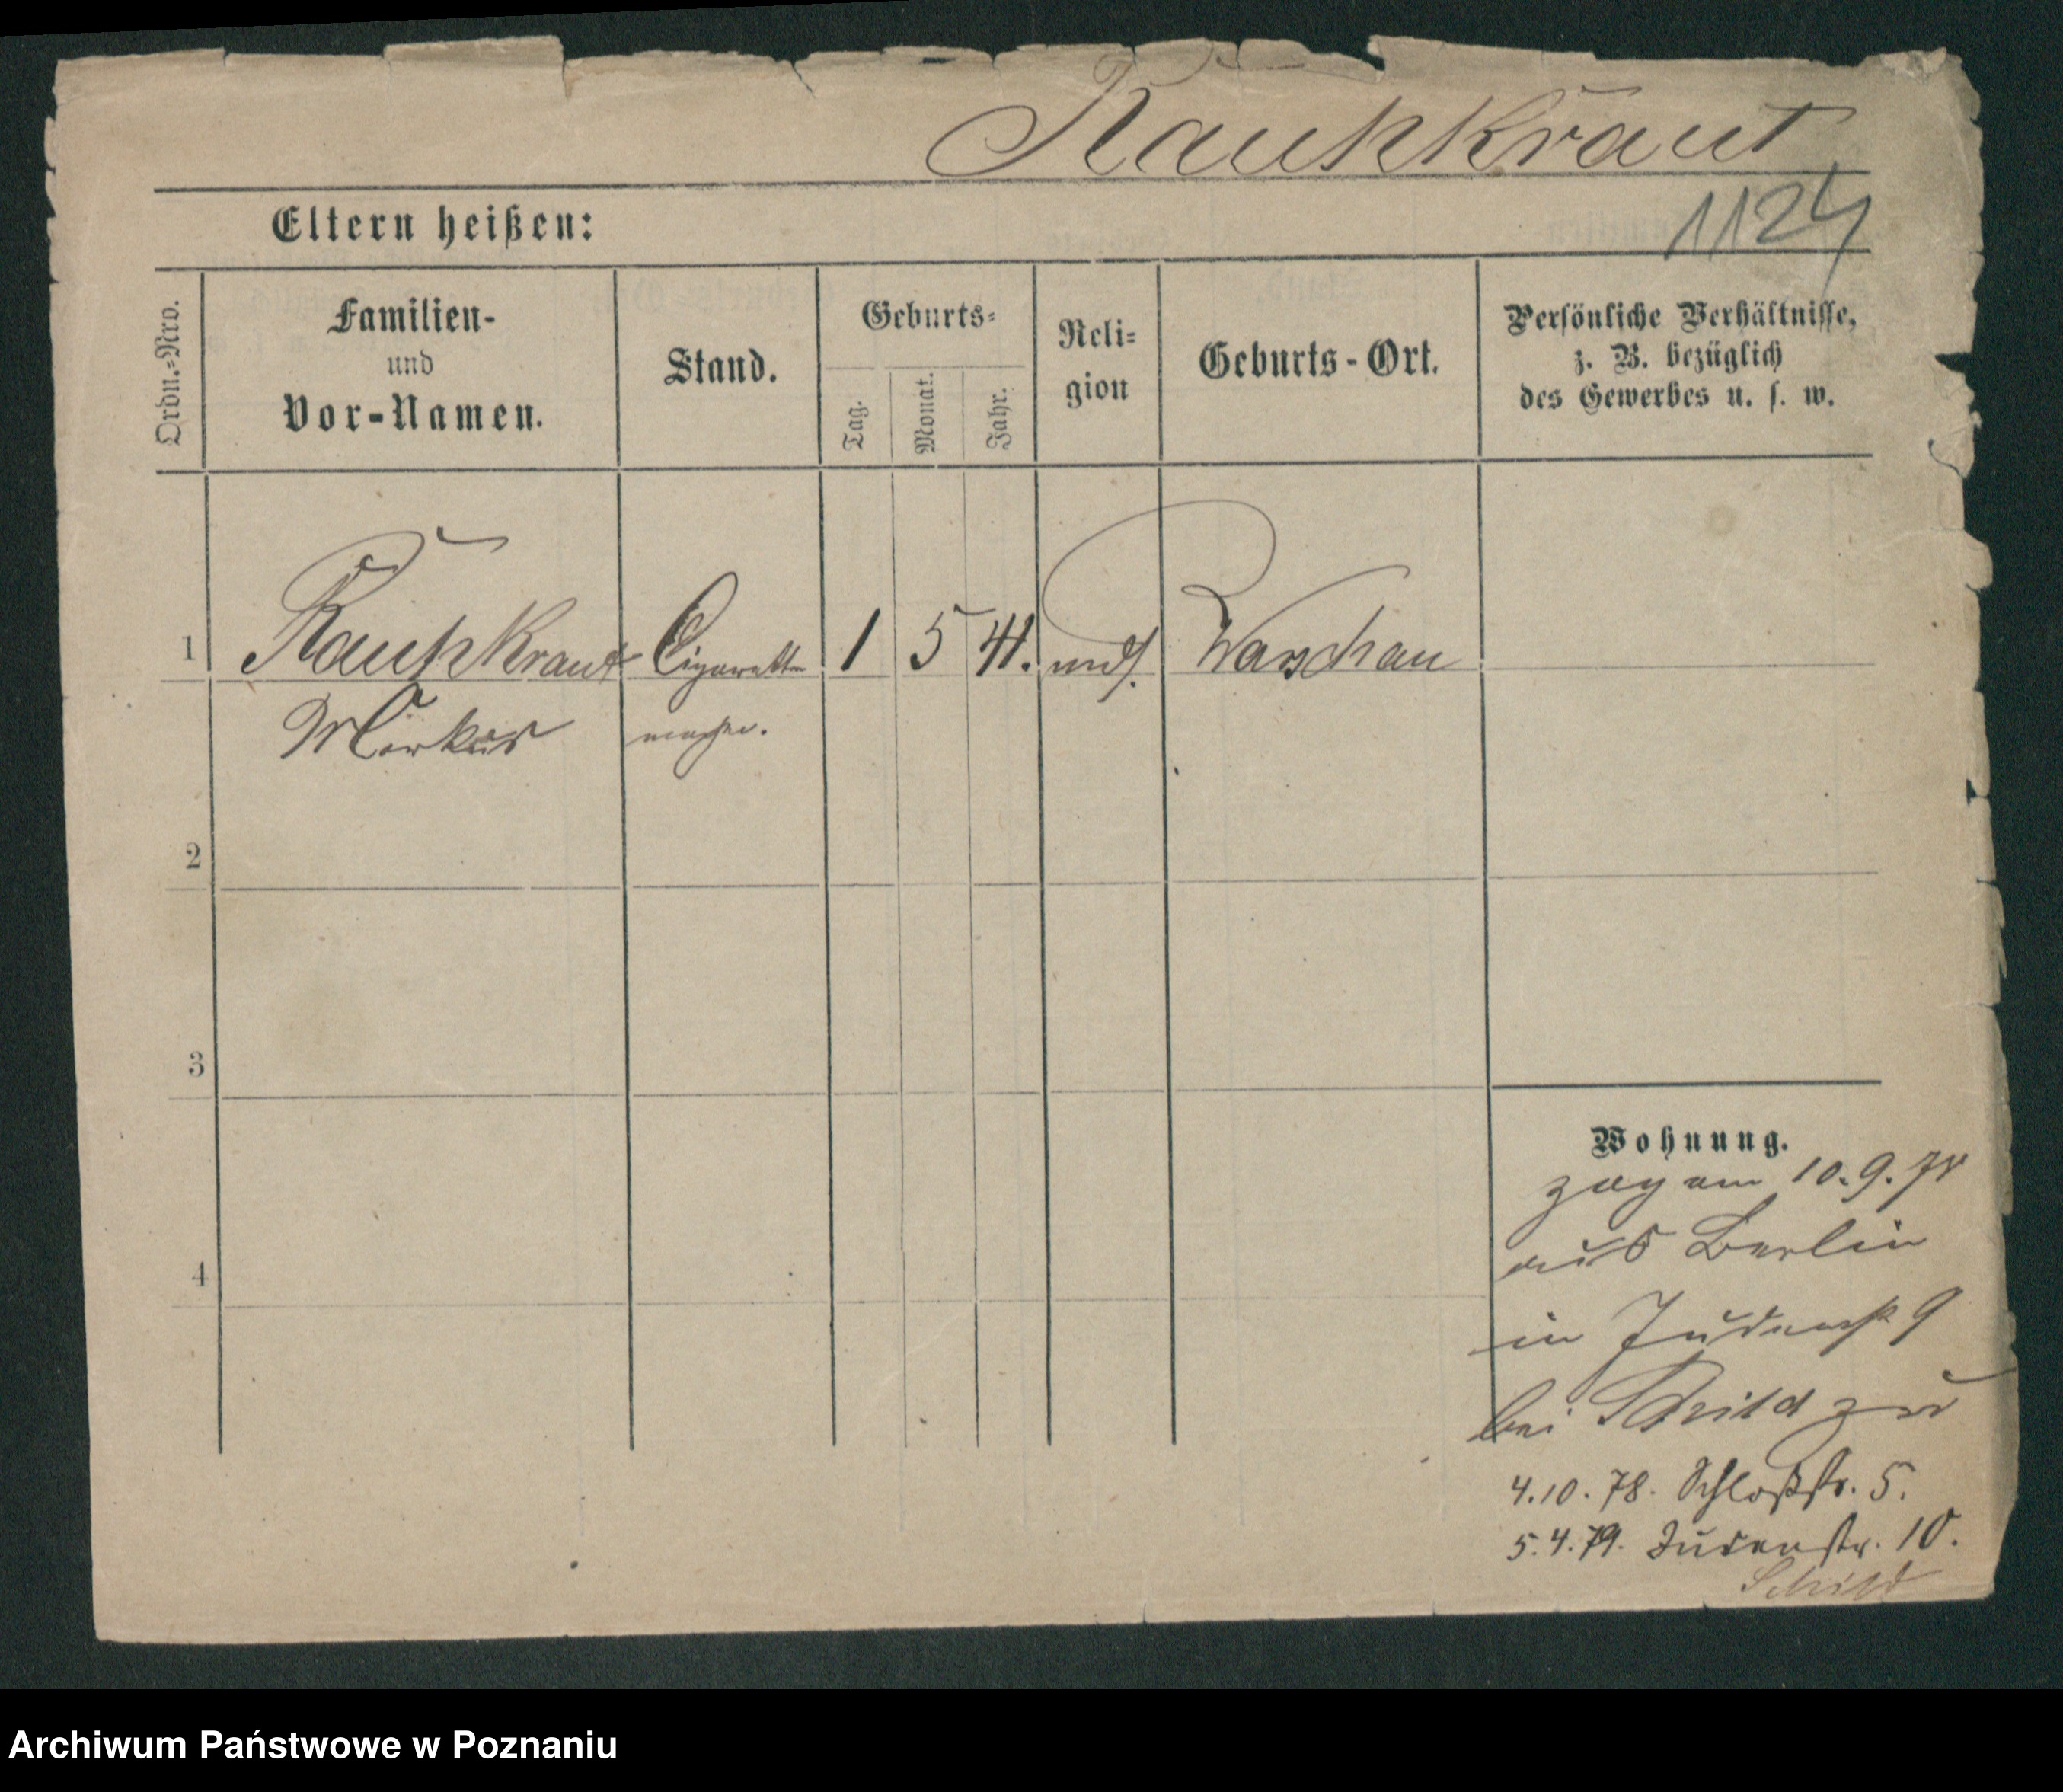 Rauchkraut
1124
Eltern heißen:
Ordn.=Nro.
Familien-
und
Vor-Namen.
Stand.
Geburts=
Tag.
Monat.
Jahr.
Reli=
gion
Geburts-Ort.
Persönliche Verhältnisse,
z. B. bezüglich
des Gewerbes u. s. w.
1 Rauchkraut Cigaretten 1 5 41. Warschau
Markus macher.
2
3
4
Wohnung.
zog am 10.9.78
aus Berlin
in Judenstr 9
bei Schild zu
4.10.78. Schloßstr. 5.
5.4.79. Judenstr. 10.
Schild
Archiwum Państwowe w Poznaniu